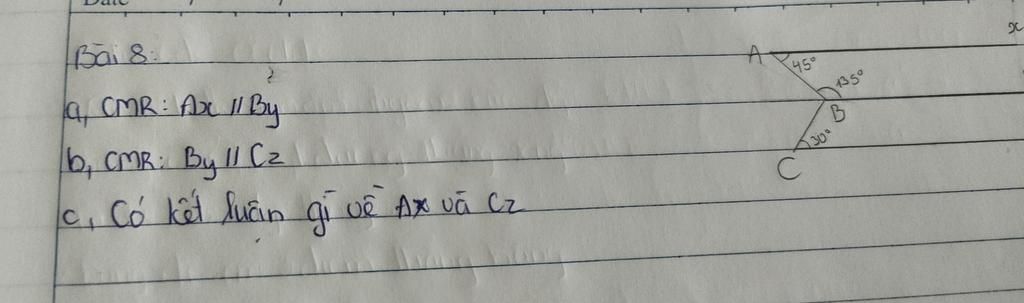 Bài 8:
a, CMR: Ax // By
b, CMR: By // Cz
c, Có kết luận gì về Ax và Cz
x
A
45°
135°
B
30°
C